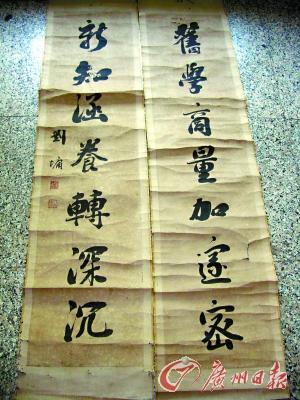 舊學商量加邃密
新知涵養轉深沉
劉墉
廣州日报